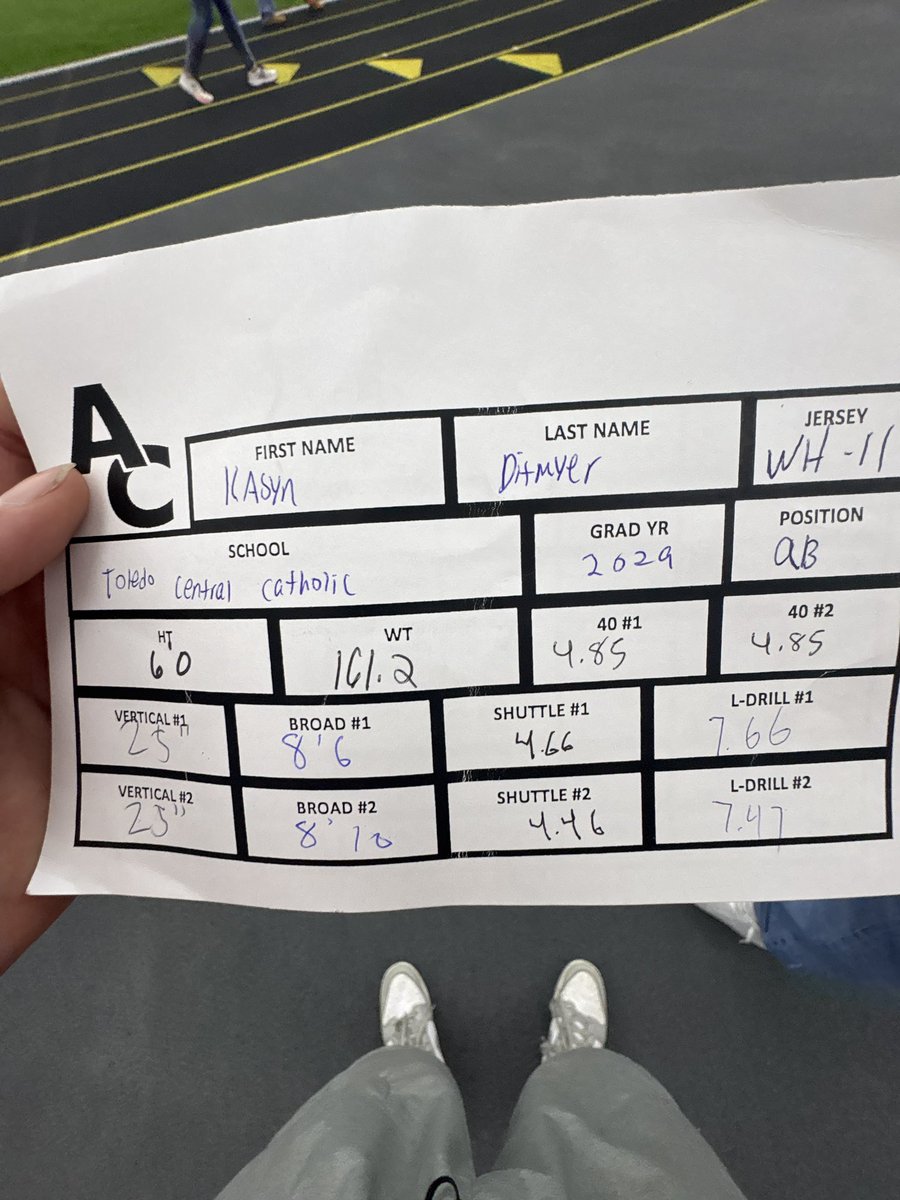 AC
FIRST NAME LAST NAME JERSEY
KAsyn Ditmyer WH-11
SCHOOL GRAD YR POSITION
Toledo Central Catholic 2029 QB
HT WT 40 #1 40 #2
60 161.2 4.85 4.85
VERTICAL #1 BROAD #1 SHUTTLE #1 L-DRILL #1
25" 8'6 4.66 7.66
VERTICAL #2 BROAD #2 SHUTTLE #2 L-DRILL #2
25" 8'10 4.46 7.47